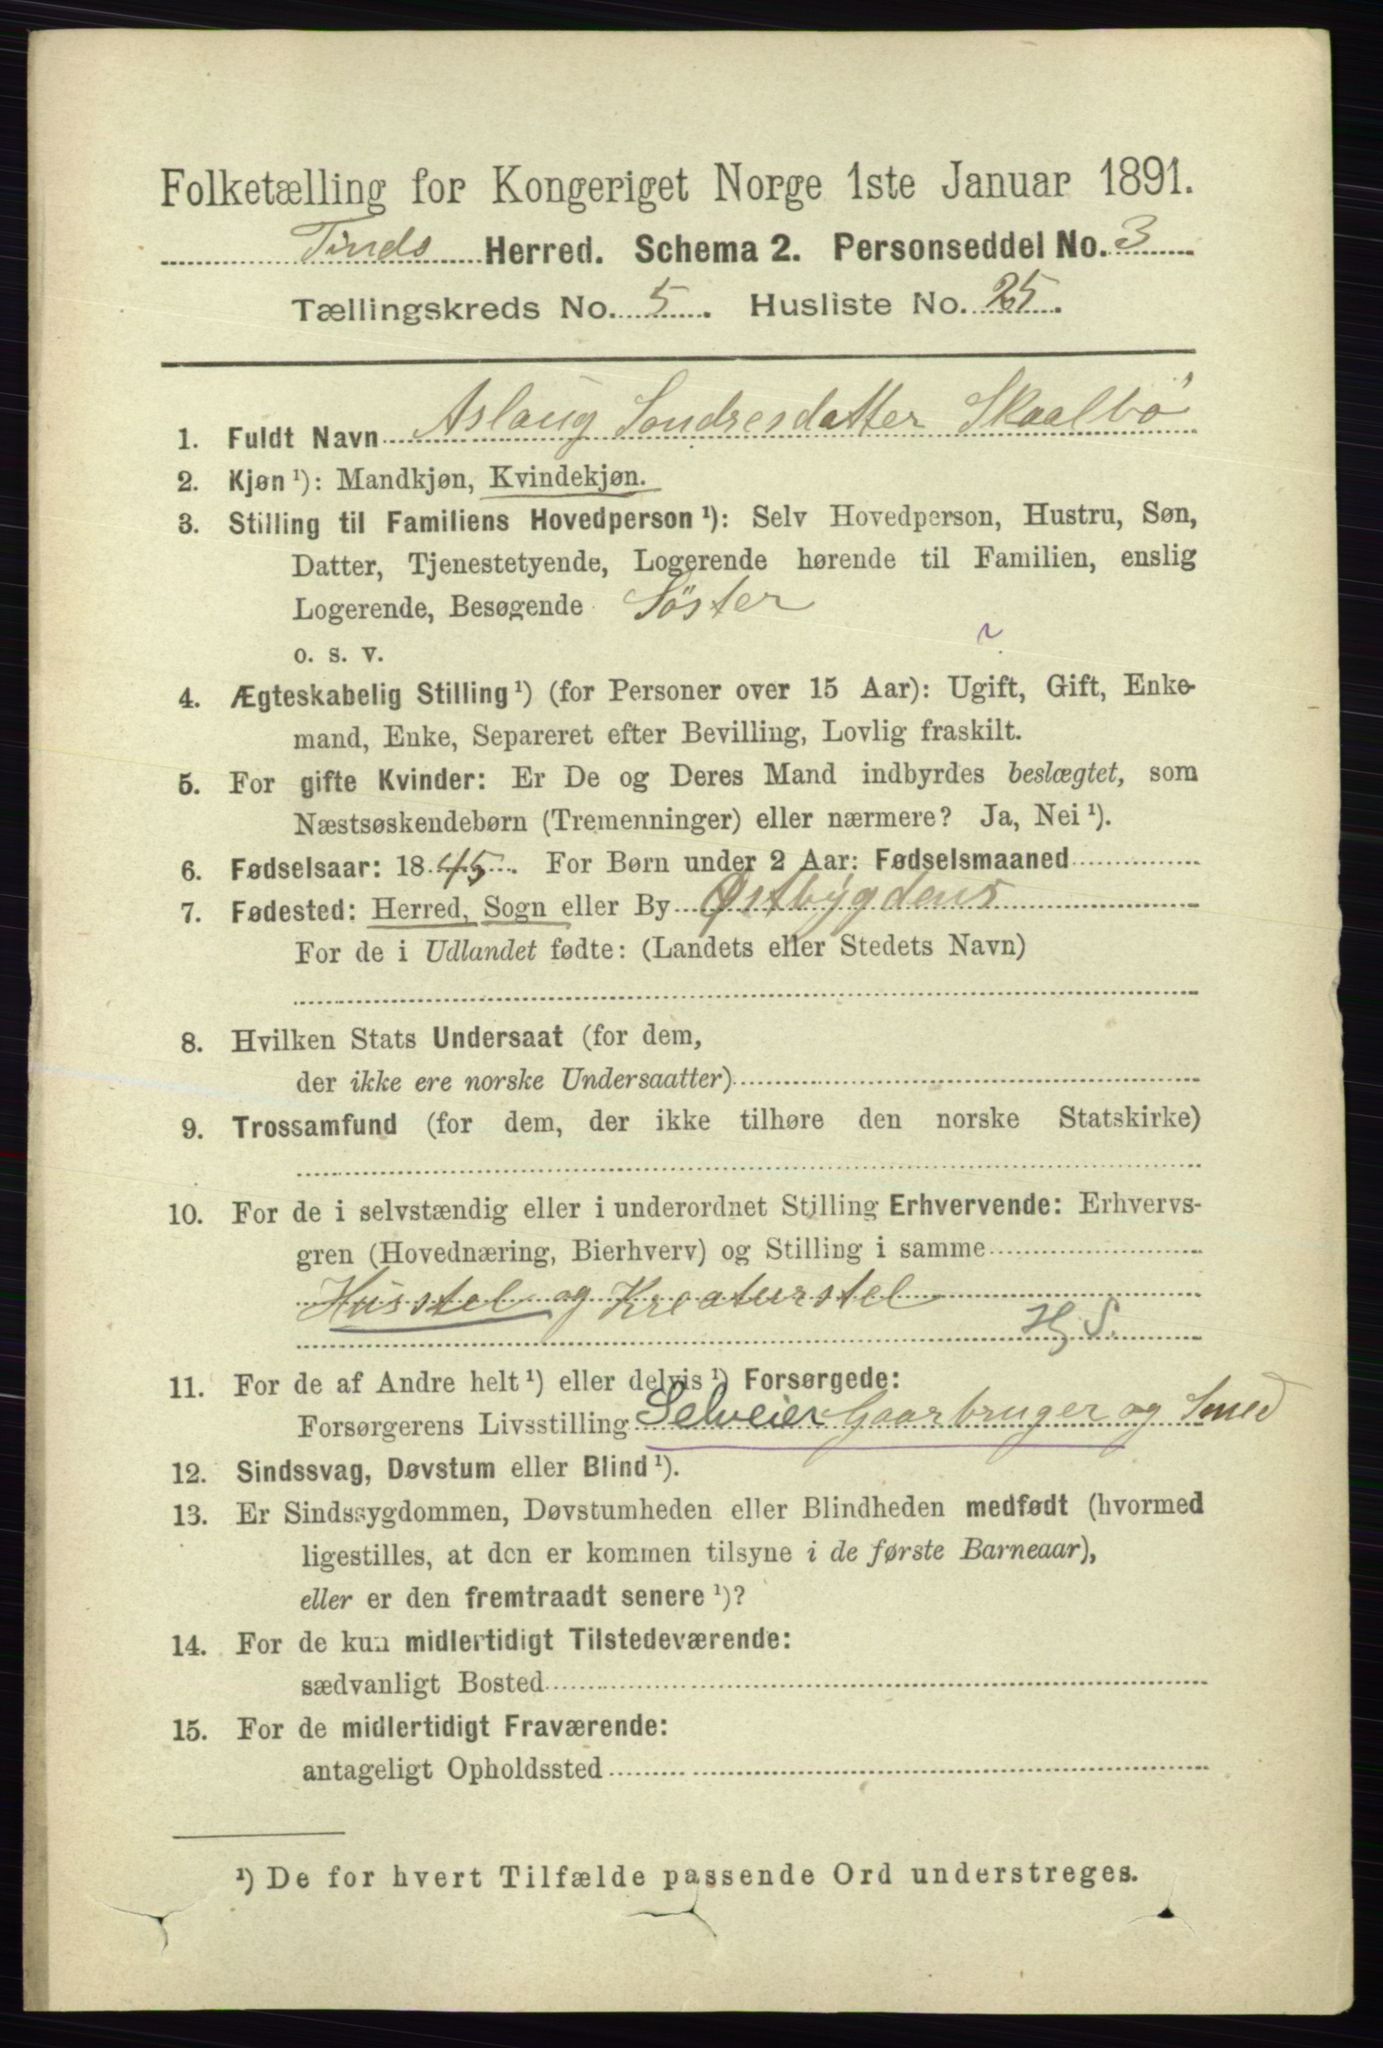 Folketælling for Kongeriget Norge 1ste Januar 1891.
Tinds Herred. Schema 2. Personseddel No. 3
Tællingskreds No. 5. Husliste No. 25.
1. Fuldt Navn Aslaug Sondresdatter Skaalbö
2. Kjøn ¹): Mandkjøn, Kvindekjøn.
3. Stilling til Familiens Hovedperson ¹): Selv Hovedperson, Hustru, Søn,
Datter, Tjenestetyende, Logerende hørende til Familien, enslig
Logerende, Besøgende Söster
o. s. v.
4. Ægteskabelig Stilling ¹) (for Personer over 15 Aar): Ugift, Gift, Enke-
mand, Enke, Separeret efter Bevilling, Lovlig fraskilt.
5. For gifte Kvinder: Er De og Deres Mand indbyrdes beslægtet, som
Næstsøskendebørn (Tremenninger) eller nærmere? Ja, Nei ¹).
6. Fødselsaar: 1845. For Børn under 2 Aar: Fødselsmaaned
7. Fødested: Herred, Sogn eller By Østbygdens
For de i Udlandet fødte: (Landets eller Stedets Navn)
8. Hvilken Stats Undersaat (for dem,
der ikke ere norske Undersaatter)
9. Trossamfund (for dem, der ikke tilhøre den norske Statskirke)
10. For de i selvstændig eller i underordnet Stilling Erhvervende: Erhvervs-
gren (Hovednæring, Bierhverv) og Stilling i samme
Husstel og Kreaturstel
H. S.
11. For de af Andre helt ¹) eller delvis ¹) Forsørgede:
Forsørgerens Livsstilling Selveier Gaarbruger og Smed
12. Sindssvag, Døvstum eller Blind ¹).
13. Er Sindssygdommen, Døvstumheden eller Blindheden medfødt (hvormed
ligestilles, at den er kommen tilsyne i de første Barneaar),
eller er den fremtraadt senere ¹)?
14. For de kun midlertidigt Tilstedeværende:
sædvanligt Bosted
15. For de midlertidigt Fraværende:
antageligt Opholdssted
¹) De for hvert Tilfælde passende Ord understreges.